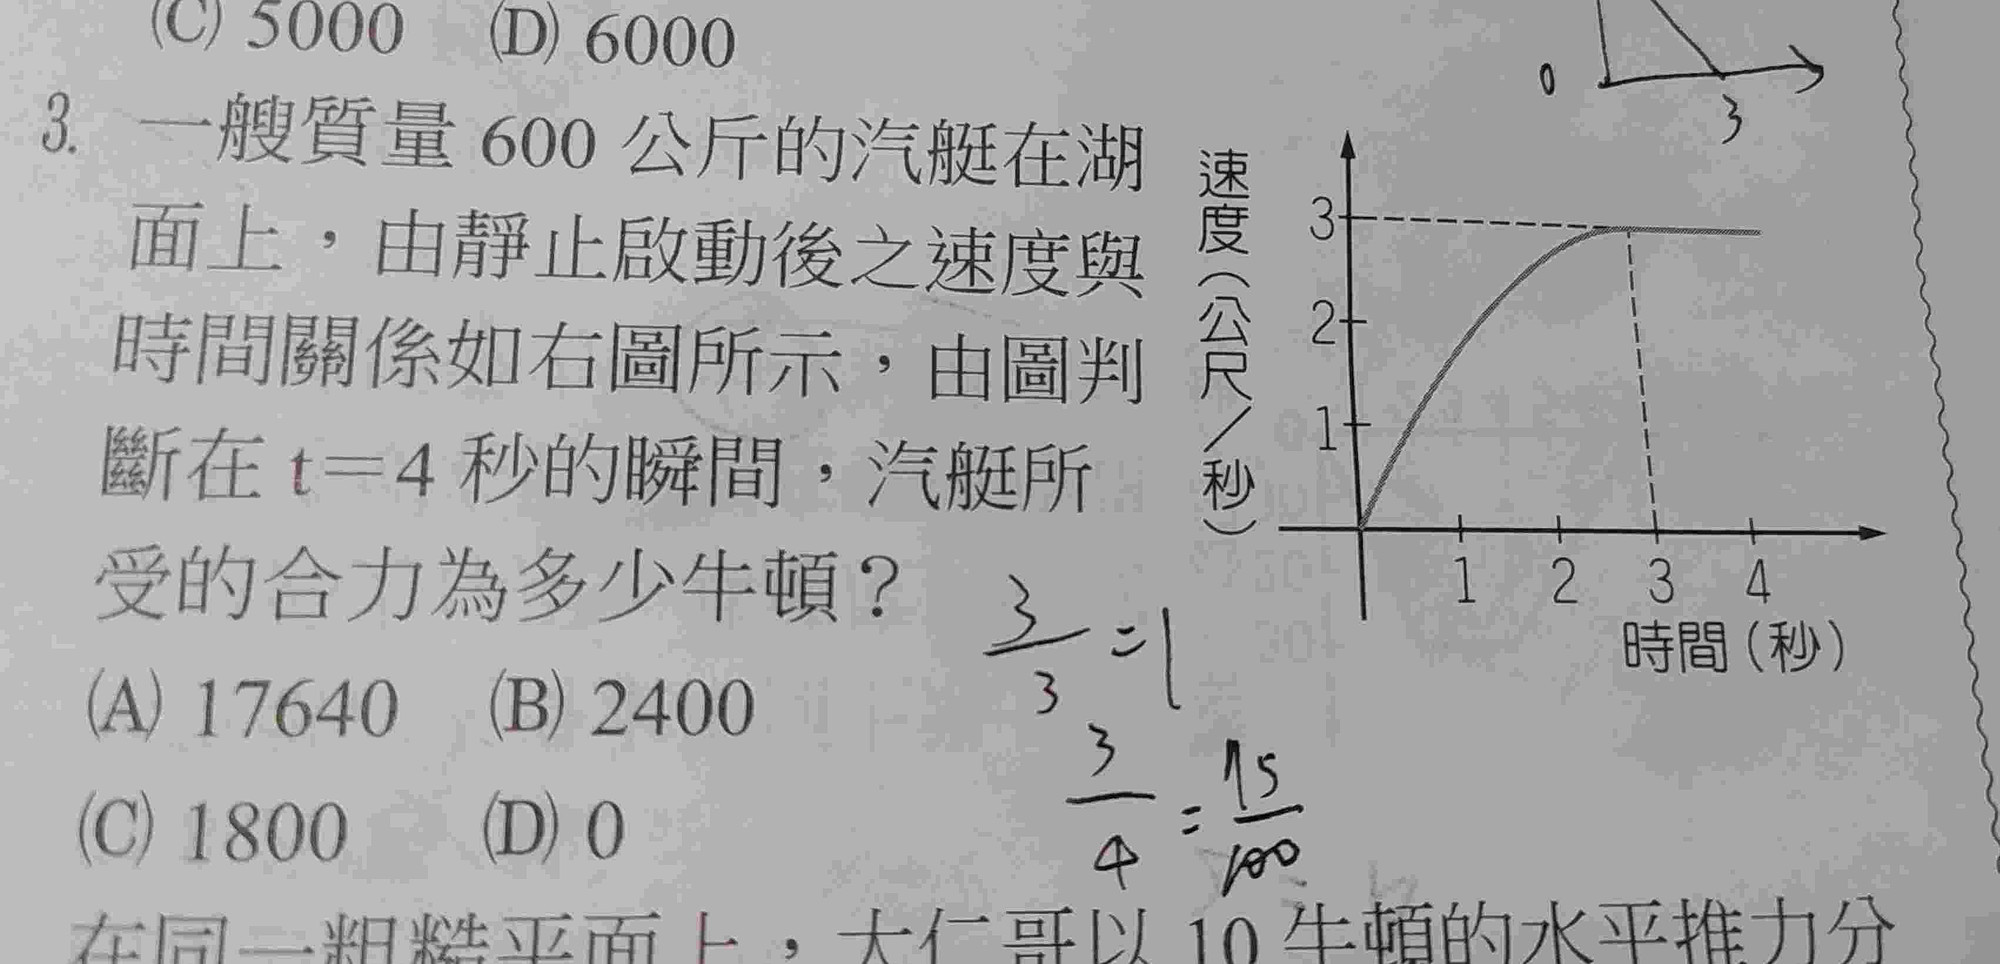 (C) 5000 (D) 6000
3. 一艘質量 600 公斤的汽艇在湖
面上，由靜止啟動後之速度與
時間關係如右圖所示，由圖判
斷在 t＝4 秒的瞬間，汽艇所
受的合力為多少牛頓？
(A) 17640 (B) 2400
(C) 1800 (D) 0
在同一粗糙平面上，大仁哥以 10 牛頓的水平推力分
0
3
速度(公尺/秒)
3
2
1
1 2 3 4
時間(秒)
3/3 = 1
3/4 = 75/100